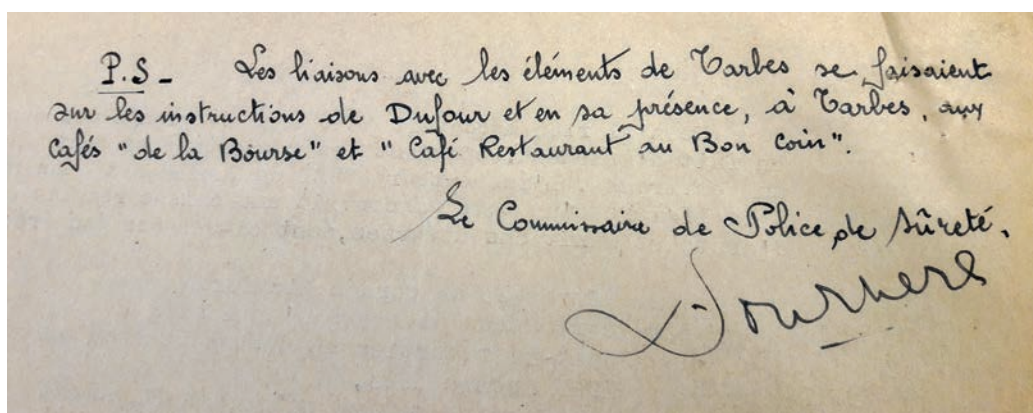 P.S - Les liaisons avec les éléments de Tarbes se faisaient
sur les instructions de Dufour et en sa présence, à Tarbes, aux
Cafés "de la Bourse" et "Café Restaurant au Bon Coin".
Le Commissaire de Police de Sûreté.